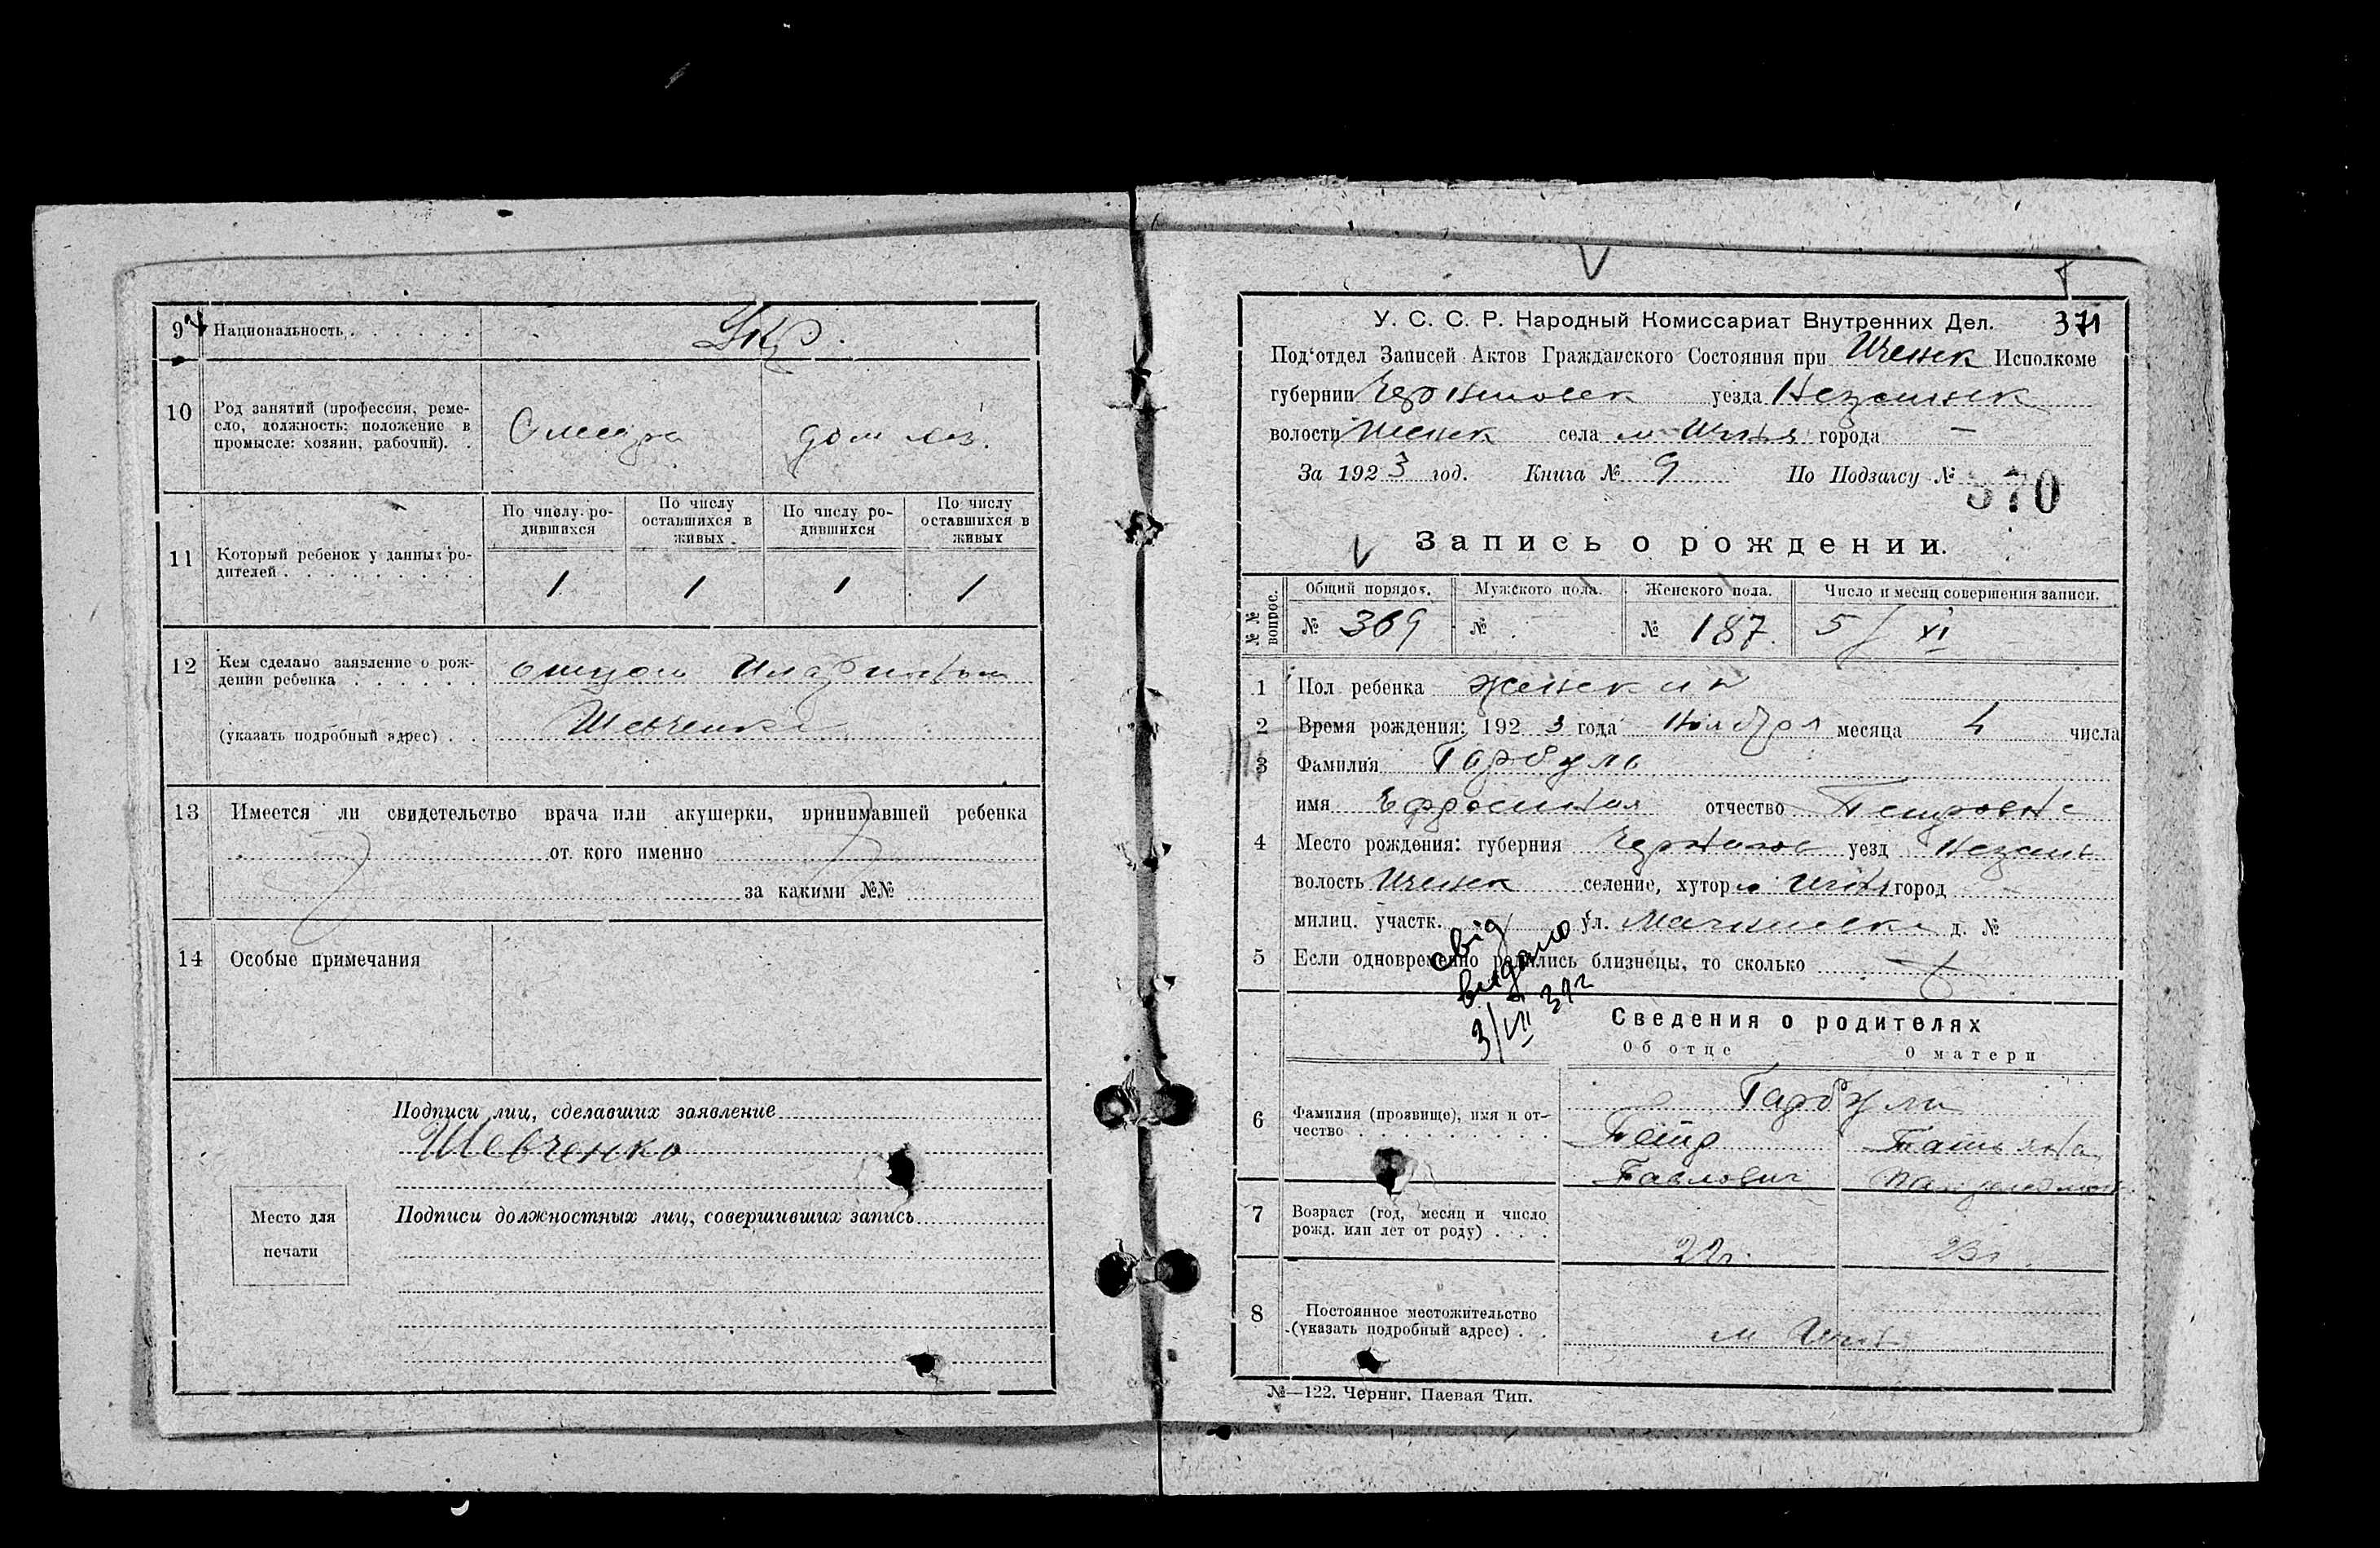 9 Национальность . . . . . . Укр.
10 Род занятий (профессия, реме-
сло, должность: положение в
промысле: хозяин, рабочий). .
дом хоз.
11 Который ребенок у данных ро-
дителей . . . . . . . . . .
По числу ро-
дившихся
По числу
оставшихся в
живых
По числу ро-
дившихся
По числу
оставшихся в
живых
1 1 1 1
12 Кем сделано заявление о рож-
дении ребенка . . . . . .
(указать подробный адрес) . .
отцом
Шевченко
13 Имеется ли свидетельство врача или акушерки, принимавшей ребенка
от кого именно
за какими №№
14 Особые примечания
Подписи лиц, сделавших заявление
Шевченко
Место для
печати
Подписи должностных лиц, совершивших запись
У. С. С. Р. Народный Комиссариат Внутренних Дел. 371
Под'отдел Записей Актов Гражданского Состояния при Иченск Исполкоме
губернии Черниговск уезда Нежинск
волости Иченск села м Ичня города —
За 1923 год. Книга № 9 По Подзагсу № 370
Запись о рождении.
№ № вопрос.
Общий порядок. Мужского пола. Женского пола. Число и месяц совершения записи.
№ 369 № № 187. 5/XI
1 Пол ребенка женский
2 Время рождения: 1923 года Ноября месяца 4 числа
3 Фамилия Гарбуль
имя Ефросиния отчество Петровна
4 Место рождения: губерния Чернигов уезд Нежинс
волость Иченск селение, хутор м Ичня город —
милиц. участк. ул. д. №
5 Если одновременно родились близнецы, то сколько
свід
видано
3/VII 31г
Сведения о родителях
Об отце О матери
6 Фамилия (прозвище), имя и от-
чество . . . . . . . . . .
Гарбуль
Петр Татьяна
Павлович
7 Возраст (год, месяц и число
рожд. или лет от роду) . . .
22г. 23г.
8 Постоянное местожительство
(указать подробный адрес) . .
м Ичня
№—122. Черниг. Паевая Тип.